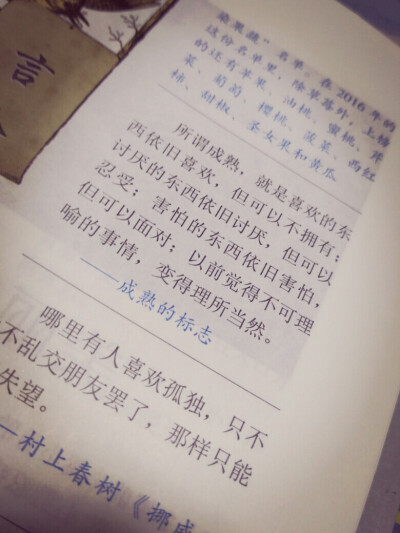 言
果蔬”名单。在2016年的
这份名单里，除草莓外，上榜
的还有苹果、油桃、蜜桃、芹
菜、葡萄、樱桃、菠菜、西红
柿、甜椒、圣女果和黄瓜
所谓成熟，就是喜欢的东
西依旧喜欢，但可以不拥有；
讨厌的东西依旧讨厌，但可以
忍受；害怕的东西依旧害怕，
但可以面对；以前觉得不可理
喻的事情，变得理所当然。
——成熟的标志
哪里有人喜欢孤独，只不
不乱交朋友罢了，那样只能
失望。
——村上春树《挪威